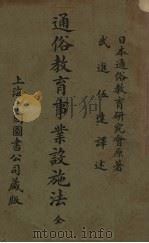 日本通俗教育研究會原著
武進伍達譯述
通俗教育事業設施法 全
上海
圖書公司藏版